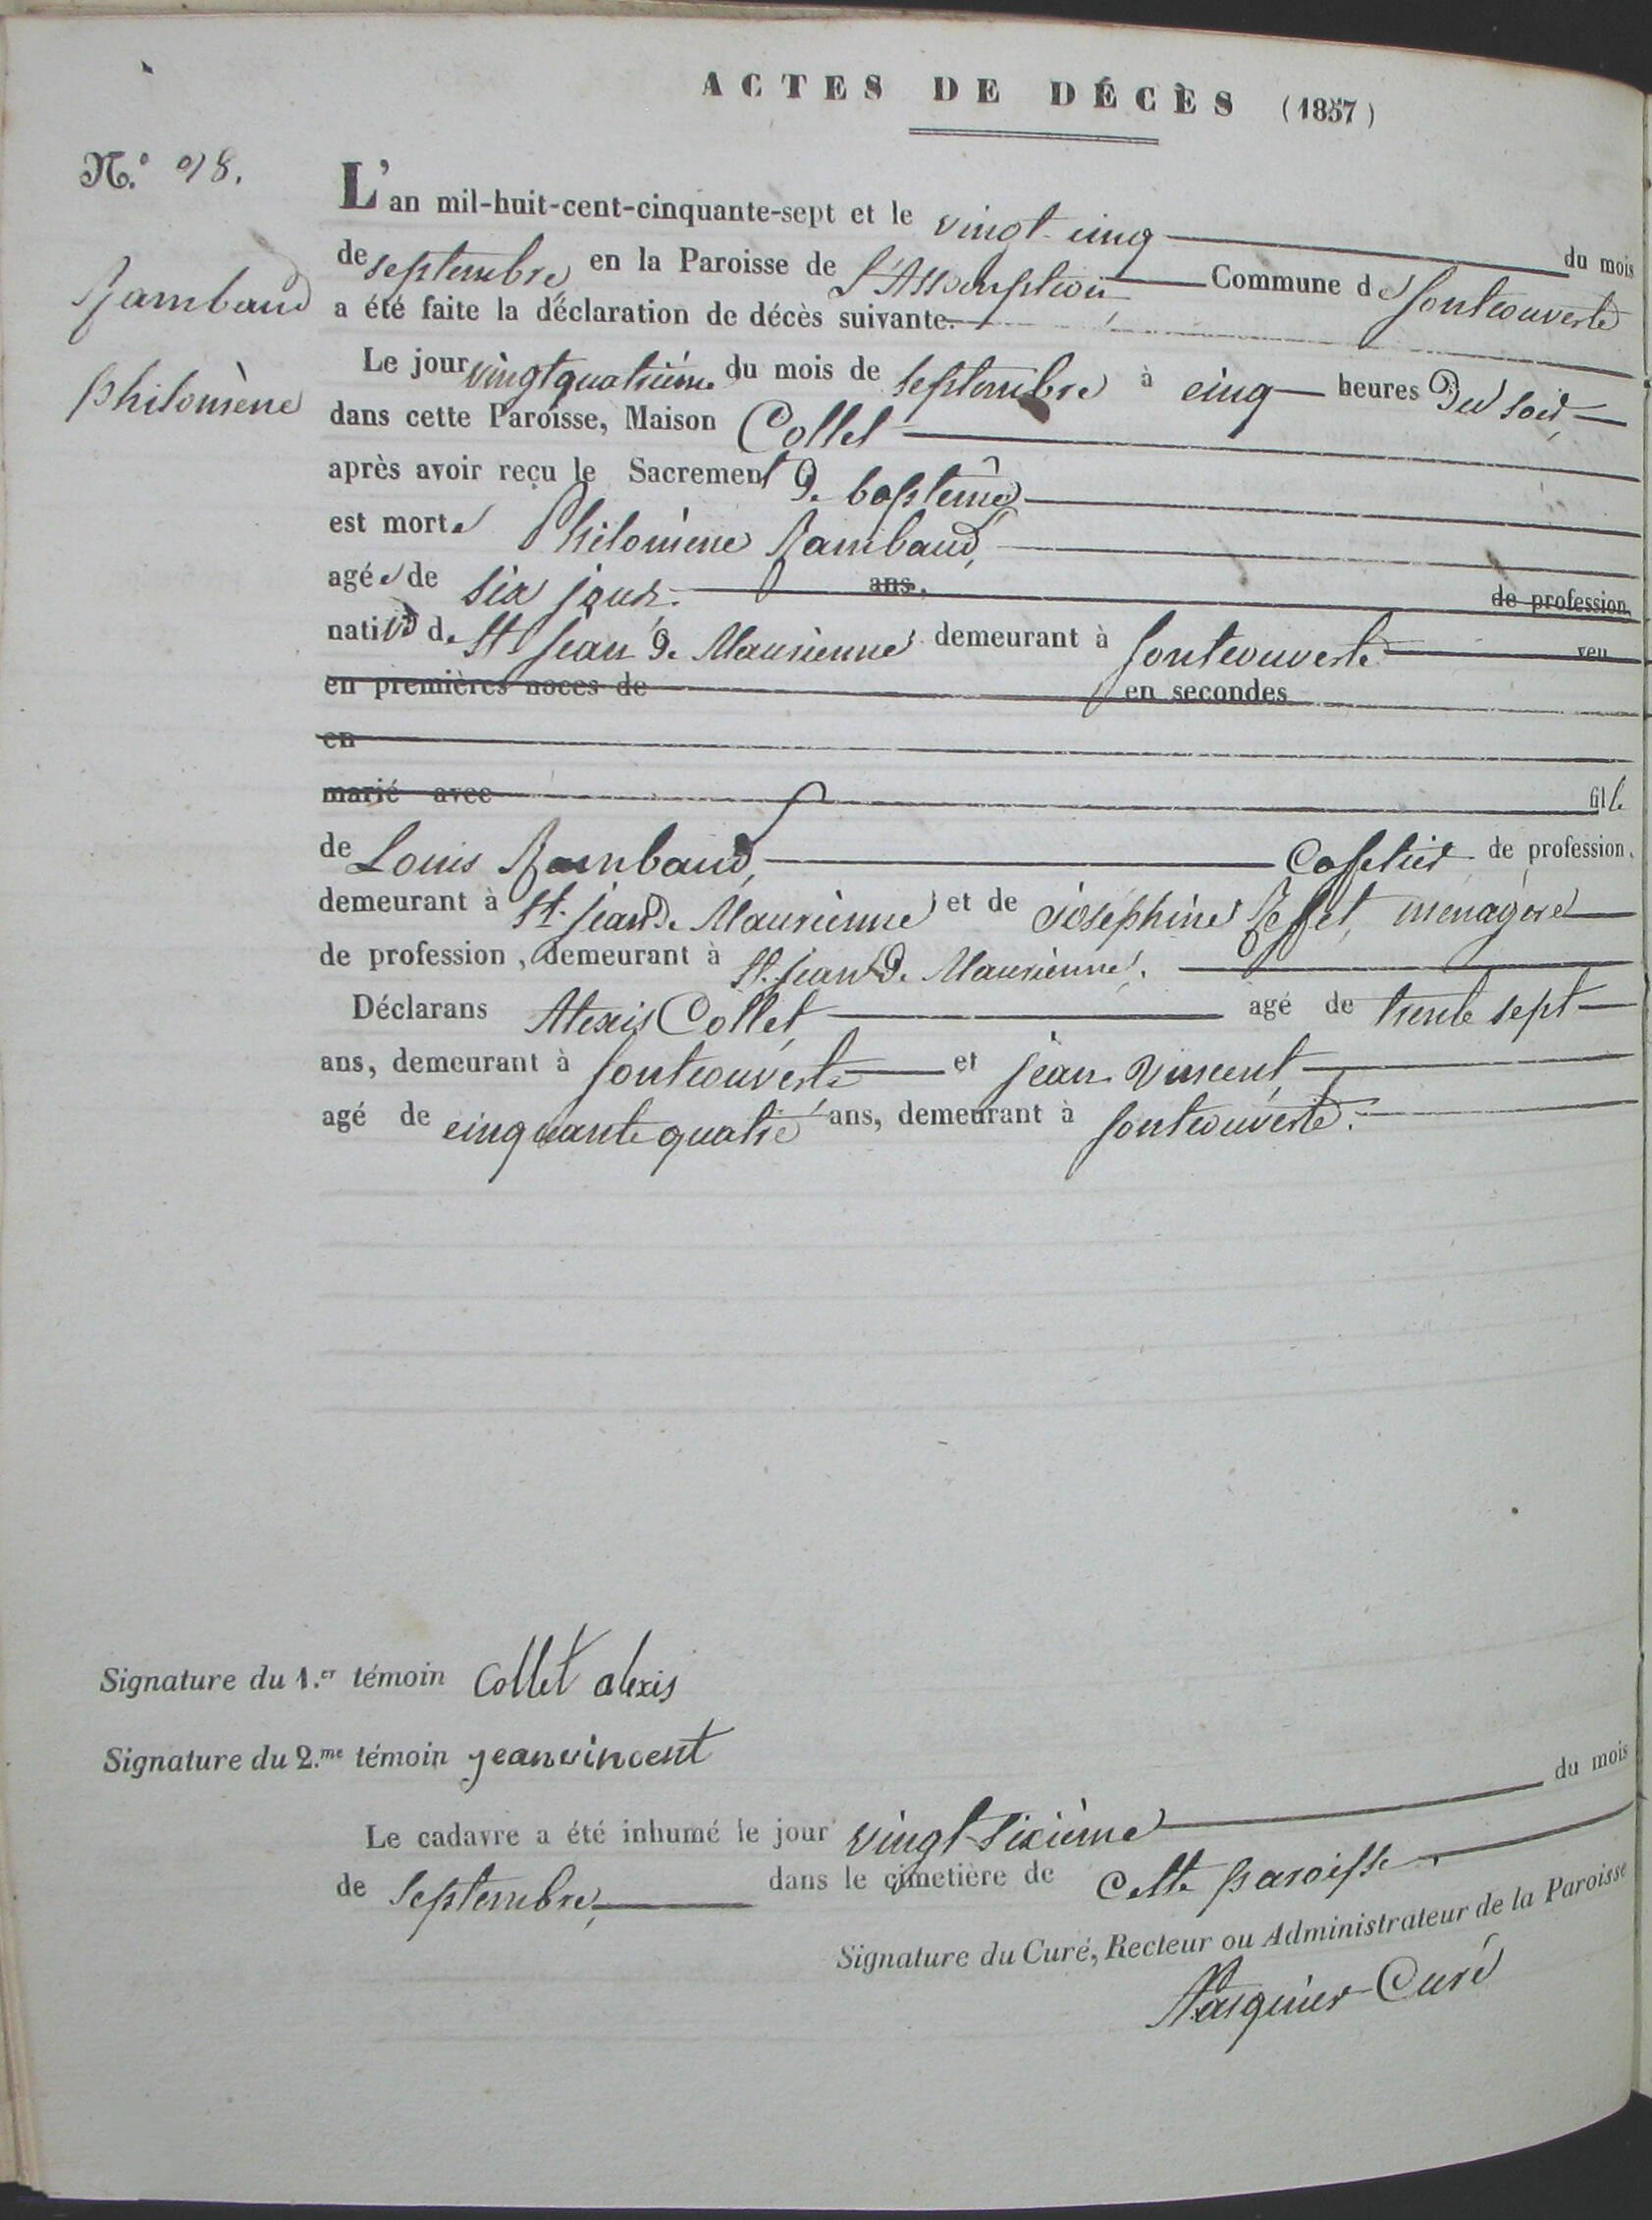 ACTES DE DÉCÈS (1857)
N.° 18.
L'an mil-huit-cent-cinquante-sept et le vingt-cinq du mois
de septembre en la Paroisse de L'Assomption Commune de fontcouverte
Rambaud
a été faite la déclaration de décès suivante.
Le jour vingt quatrième du mois de septembre à cinq heures du soir,
philomène
dans cette Paroisse, Maison Collet
après avoir reçu le Sacrement de baptême
est morte Philomène Rambaud,
agée de six jours. ans. de profession
native de St Jean de Maurienne demeurant à fontcouverte veu
en premières noces de en secondes
en
marié avec fille
de Louis Rambaud, de profession.
demeurant à St. Jean de Maurienne et de joséphine ménagère
de profession, demeurant à St. Jean de Maurienne.
Déclarans Alexis Collet, agé de trente sept
ans, demeurant à fontcouverte et jean Vincent,
agé de cinquante quatre ans, demeurant à fontcouverte.
Signature du 1.er témoin Collet alexis
Signature du 2.me témoin jeanvincent
Le cadavre a été inhumé le jour vingt-sixième du mois
de septembre, dans le cimetière de cette paroisse.
Signature du Curé, Recteur ou Administrateur de la Paroisse
Curé